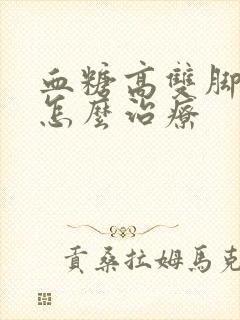 血糖高雙腳
怎麼治療
貢桑拉姆馬克